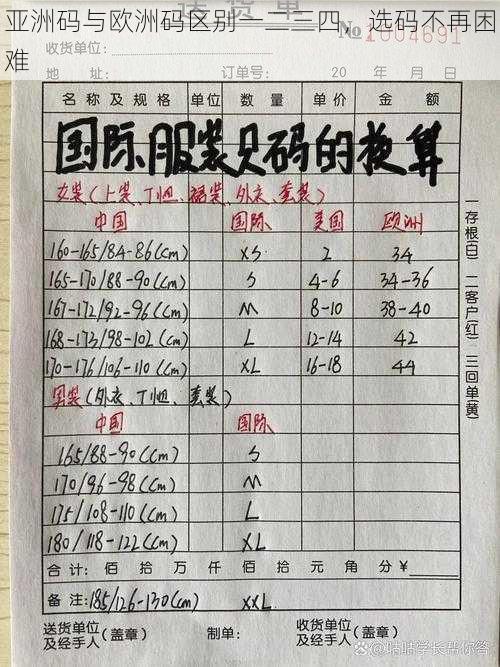 亚洲码与欧洲码区别一二三四，选码不再困
难
送货单
收货单位： No 2004691
地址： 订单号： 20 年 月 日
名称及规格 单位 数量 单价 金额
国际服装尺码的换算
女装（上装、T恤、裙装、外衣、套装）
中国 国际 美国 欧洲
160-165/84-86(cm) XS 2 34
165-170/88-90(cm) S 4-6 34-36
167-172/92-96(cm) M 8-10 38-40
168-173/98-102(cm) L 12-14 42
170-176/106-110(cm) XL 16-18 44
男装（外衣、T恤、套装）
中国 国际
165/88-90(cm) S
170/96-98(cm) M
175/108-110(cm) L
180/118-122(cm) XL
合计： 佰 拾 万 仟 佰 拾 元 角 分￥
备注：185/126-130(cm) XXL
送货单位及经手人（盖章） 制单： 收货单位及经手人（盖章）
一存根(白) 二客户红) 三回单(黄)
@咕咕学长帮你答